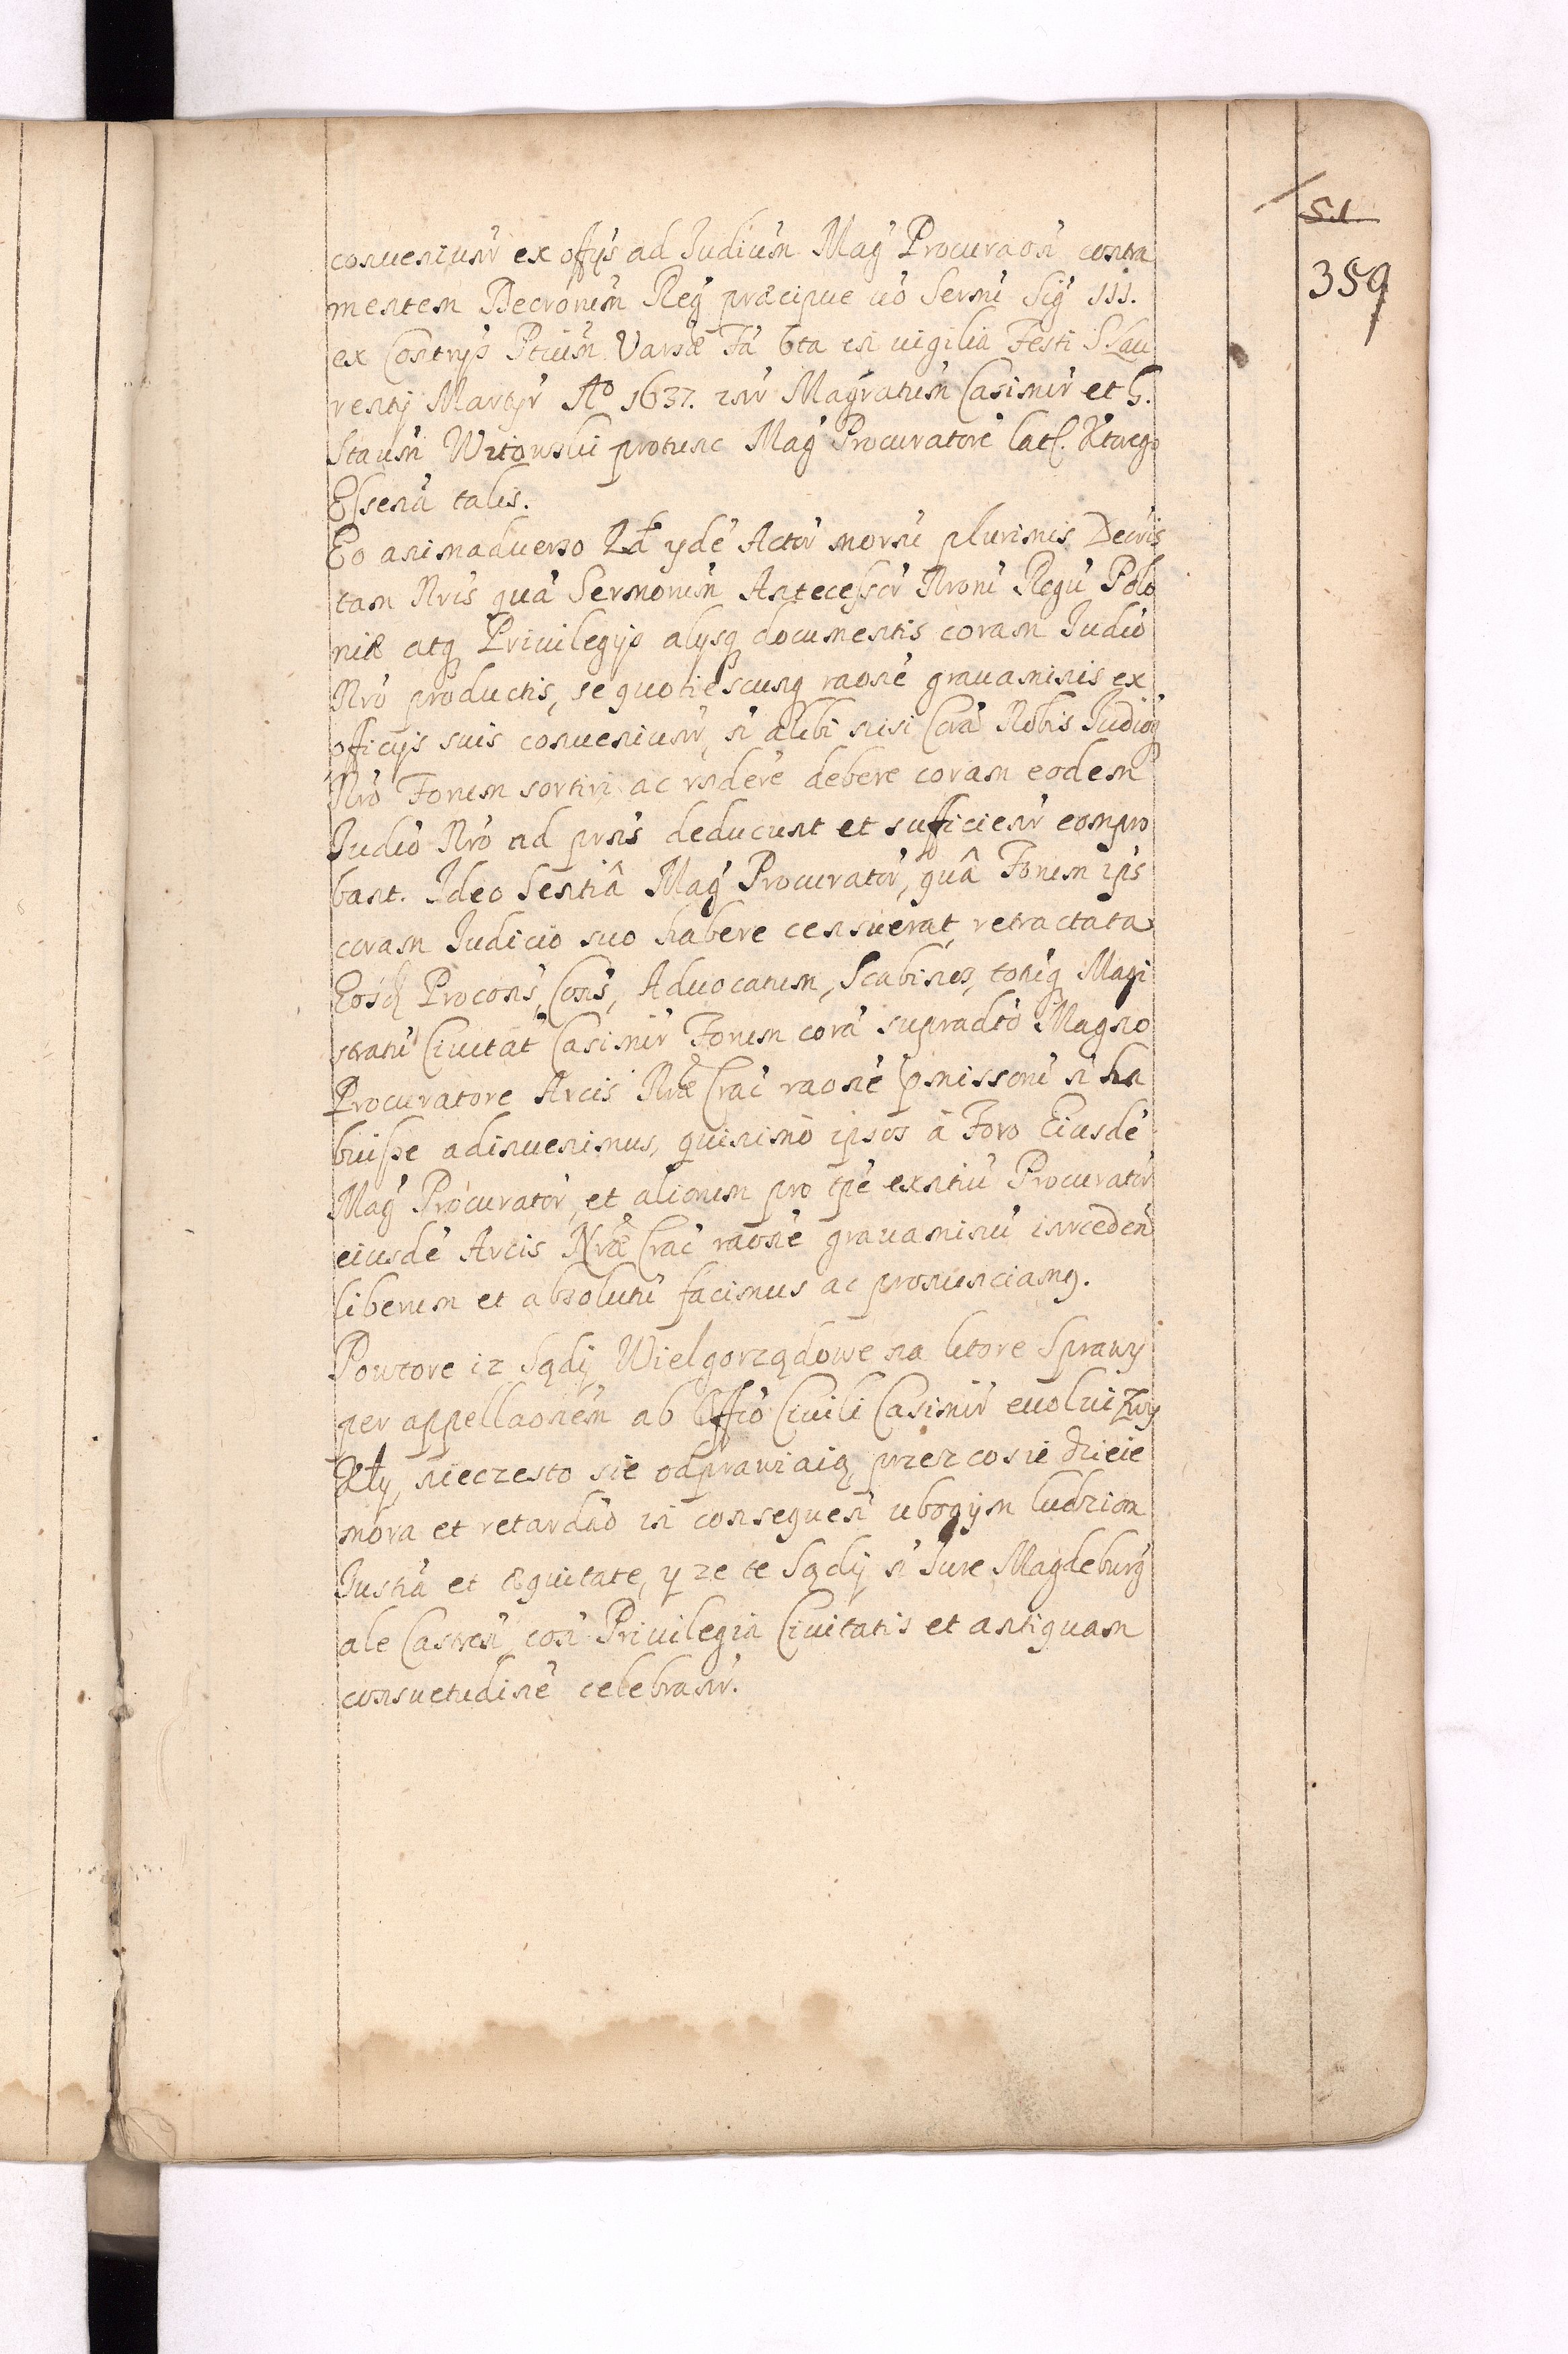 51
359
conveniunr ex offijs ad Judiciu͂m Mag̃ Procuraon̄ contra
mentem Decronu͂m Reg̃ præcipue uō Sermi Sig̃ III.
ex Contryβ Ptiu͂m Varsæ Fã 6ta in uigilia Festi S. Lau
rentÿ Martÿr̃ Aº 1637. inr̃ Magr̃atum Casimir̃ et G.
Staum̃ Witowski protunc Mag̃ Procuratore͂
Essen͂a talis.
Eo animaduerso Qd̃ ÿde͂ Actor̃ plurimis Decr̃is
tam Nr̃is qua͂ Sermorum̃ Antecessor̃ Nronu͂ Regu͂ Polo
niæ atq̃ Priuilegÿβ alÿsq̃ documentis coram Judiō
Nrō productis, se quotiescunq̃ raone͂ grauaminis ex
officijs suis conueniunr̃, n̄ alibi nisi Cora͂ Nobis Judioq̃
Nrō Forum sortiri ac rn̄dere͂ debere coram eodem
Judiō Nrō ad prn̄s deducunt et sufficienr̃ compro
bant. Ideo Sentiâ Mag̃ Procurator̃, quâ Forum ips̃
coram Judicio suo habere censuerat, retractata
Eosd̃ Procons̃, Cons̃, Aduocatum, Scabinos, totuq̃ Magi
stratu͂ Ciuitat̃ Casimir̃ Forum cora͂ supradtō Magno
Procuratore Arcis Nræ Crac̃ raone͂ pmissonu͂ n̄ ha
buisse adinuenimus, quinimō ipsos à Foro Eiusde͂
Mag̃ Procurator̃, et aliorum pro tpe͂ exn̄tiu͂ Procurator̃
eiusde͂ Arcis Nræ Crac̃ raone͂ grauaminu͂ inrceden̄
liberum et absolutu͂ facimus ac pronunciamq̃.
Powtore iz Sądÿ Wielgorządowe na ktore Sprawÿ
per appellaonem̃ ab Offio Ciuili Casimir̃ euolui zwy
kłÿ, nieczesto sie odprawiaią, przez co sie dzieie
mora et retardāo in consequen̄ ubogÿm ludziom
Justiā et æquitate, ÿ ze te Sądÿ n̄ Jure Magdeburg̃
ale Castren̄ con̄ Priuilegia Ciuitatis et antiquam
consuetudine͂ celebranr̃.